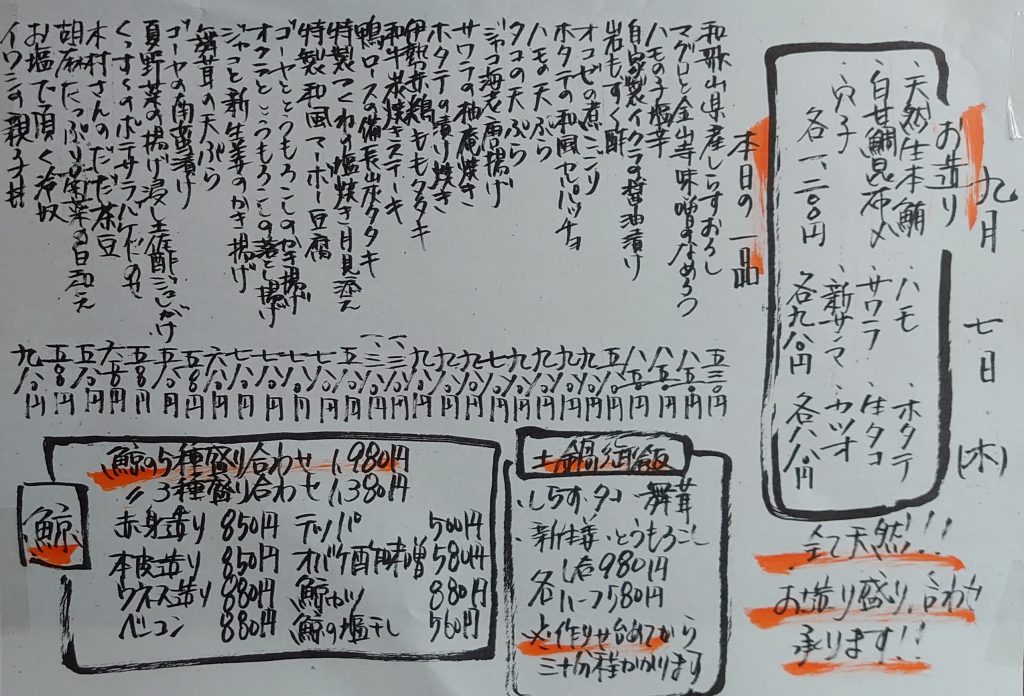 九月 七日 (木)
お造り
・天然生本鮪
・白甘鯛昆布〆
・穴子
各一、二〇〇円
・ハモ
・サワラ
・新サンマ
各九八〇円
・ホタテ
・生タコ
・カツオ
各八八〇円
全て天然!!
お造り盛り合わせ
承ります!!
本日の一品
和歌山県産しらすおろし 五三〇円
マグロと金山寺味噌のなめろう 八五〇円
ハモの子塩辛 八五〇円
自家製イクラの醤油漬け 八五〇円
岩もずく酢
オコゼの煮こごり
ホタテの和風カルパッチョ
ハモの天ぷら
タコの天ぷら
ジャコ海老唐揚げ
サワラの柚庵焼き
ホタテの漬け焼き
伊勢赤鶏ももタタキ
和牛炭焼きステーキ
鴨ロースの備長炭タタキ
特製つくねの塩焼き月見添え
特製和風マーボー豆腐
ゴーヤととうもろこしのかき揚げ
オクラととうもろこしの落とし揚げ
ジャコと新生姜のかき揚げ
舞茸の天ぷら
ゴーヤの南蛮漬け
夏野菜の揚げ浸し土佐酢ジュレがけ
くっすんのポテサラバケット付
木村さんのだだ茶豆
胡麻たっぷり
お塩で頂く冷奴
イワシの親子丼
土鍋御飯
・しらす・タコ・舞茸
・新生姜・とうもろこし
各 1合980円
ハーフ580円
※作り始めてから
三十分程かかります
鯨
鯨の5種盛り合わせ 1,980円
〃 3種盛り合わせ 1,380円
赤身造り 850円 テッパ 500円
本皮造り 850円 オバケ酢味噌 580円
ウネス造り 880円 鯨カツ 880円
ベーコン 880円 鯨の塩干し 560円